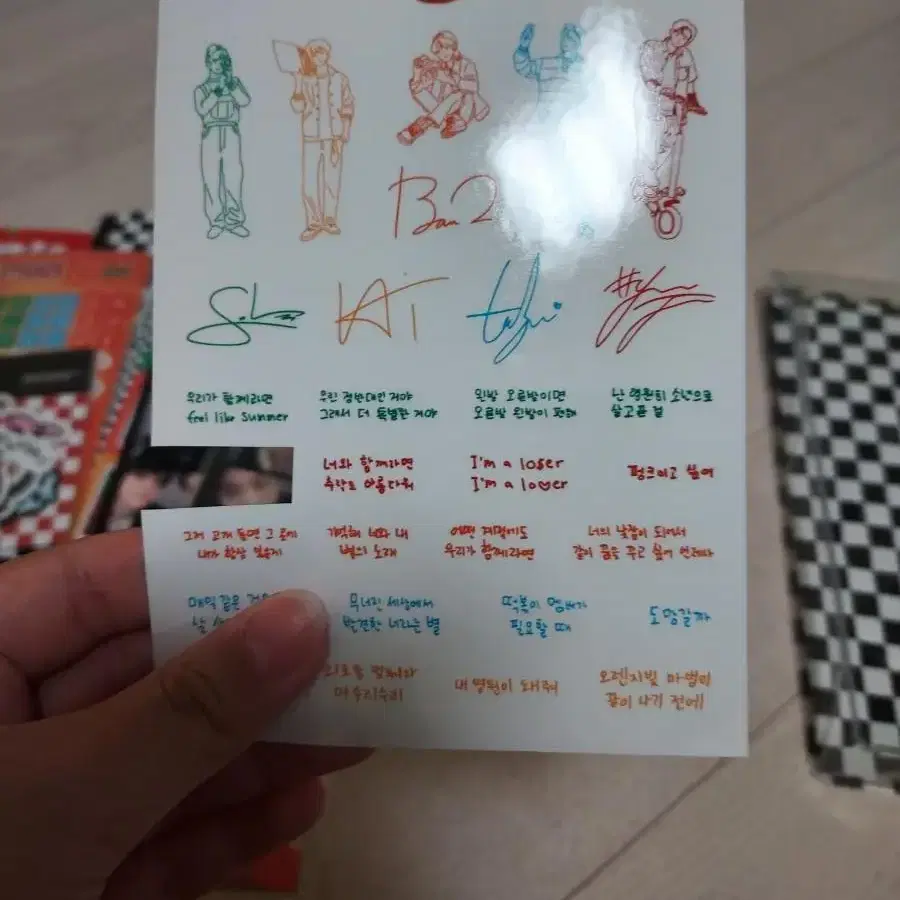 KAI
우리가 함께라면
feel like summer
우린 정반대인 거야
그래서 더 특별한 거야
왼발 오른발이면
오른발 왼발이 편해
난 영원히 소년으로
살고픈 걸
너와 함께라면
추락도 아름다워
I'm a loser
I'm a lover
펑크이고 싶어
그저 고개 돌면 그 곳에
내가 항상 있을게
기억해 너와 내
별의 노래
어떤 계절에도
우리가 함께라면
너의 낮잠이 되어서
같이 꿈을 꾸고 싶어 언제나
매일 같은
무너진 세상에서
발견한 너라는 별
떡볶이 멤버가
필요할 때
도망갈까
내 영원이 돼줘
오렌지빛 마법이
끝이 나기 전에